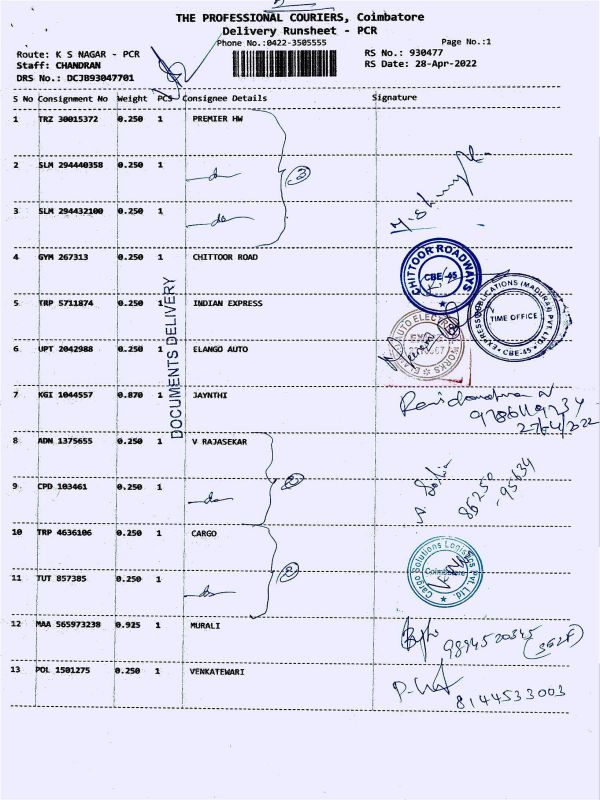 THE PROFESSIONAL COURIERS, Coimbatore
Delivery Runsheet - PCR
Phone No.:0422-3505555
Page No.:1
Route: K S NAGAR - PCR
RS No.: 930477
Staff: CHANDRAN
RS Date: 28-Apr-2022
DRS No.: DCJB93047701
S No Consignment No Weight PCS Consignee Details Signature
1 TRZ 30015372 0.250 1 PREMIER HW
2 SLM 294440358 0.250 1 do
3
3 SLM 294432100 0.250 1 do
4 GYM 267313 0.250 1 CHITTOOR ROAD
CHITTOOR ROADWAYS
CBE-45
5 TRP 5711874 0.250 1 INDIAN EXPRESS
TIME OFFICE
CBE-45
DOCUMENTS DELIVERY
6 UPT 2042988 0.250 1 ELANGO AUTO
AUTO ELECTRICAL WORKS
7 KGI 1044557 0.870 1 JAYNTHI
9786119234
27/4/2022
8 ADN 1375655 0.250 1 V RAJASEKAR
9 CPD 103461 0.250 1 do
2
86250
95634
10 TRP 4636106 0.250 1 CARGO
Cargo Solutions Logistics Pvt. Ltd.
Coimbatore
11 TUT 857385 0.250 1 do
2
12 MAA 565973238 0.925 1 MURALI
9894520345
13 POL 1501275 0.250 1 VENKATEWARI
8144533003